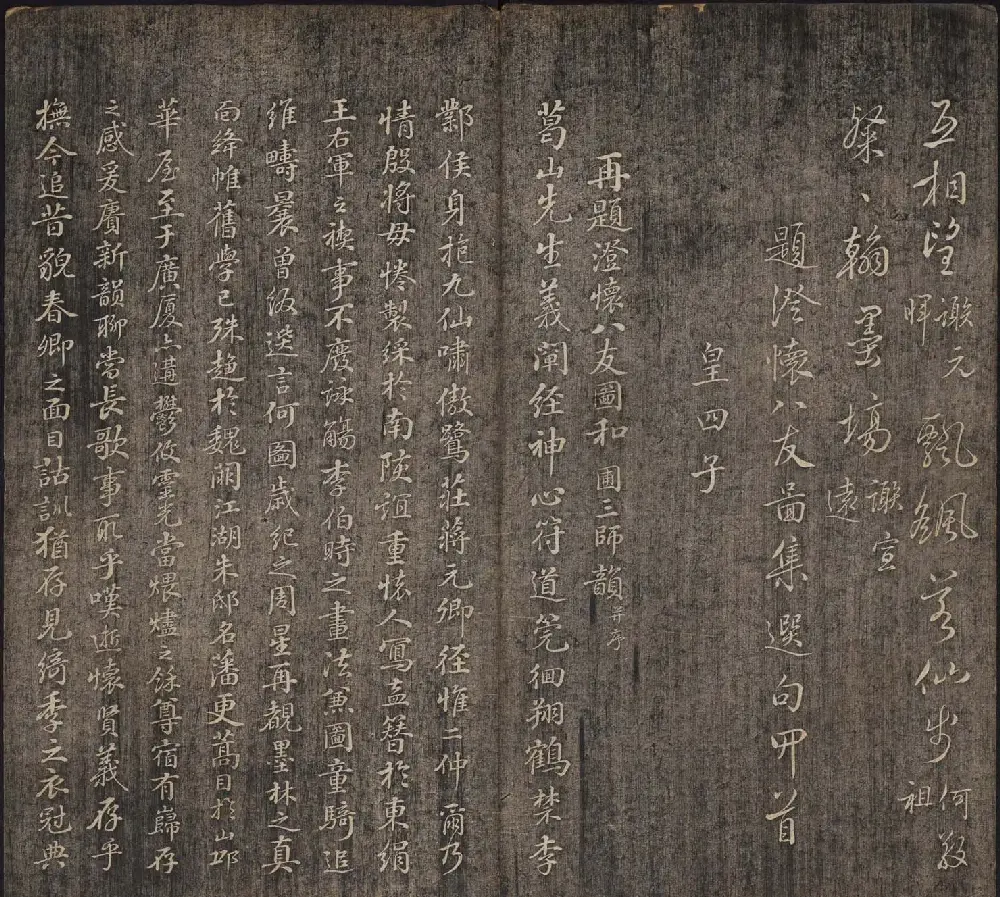 五相望 謝元暉 飄飖若仙步 何敬祖
粲〻翰墨場 謝宣遠
題澄懷八友圖集選句四首
皇四子
再題澄懷八友圖和圃三師韻 并序
葛山先生義闡經神心符道筦徊翔鶴禁李
鄴侯身抱九仙嘯傲鷺莊蔣元卿徑惟二仲爾乃
情殷將母惓製綵於南陔誼重懷人寫盍簪於東絹
王右軍之禊事不廢詠觴李伯時之畫法兼圖童騎追
維疇曩曾綴選言何圖歲紀之周星再覩墨林之真
面絳帷舊學已殊趨於魏闕江湖朱邸名藩更蒿目於山邱
華屋至于廣廈亦遘鬱攸靈光當煨燼之餘尊宿有巋存
之感爰賡新韻聊當長歌事取乎嘆逝懷賢義存乎
撫今追昔貌春卿之面目詁訓猶存見綺季之衣冠典